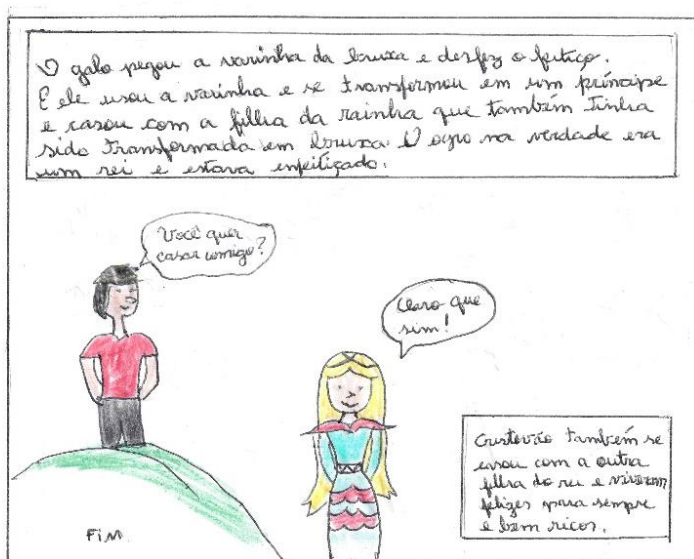 O galo pegou a varinha da bruxa e desfez o feitiço.
E ele usou a varinha e se transformou em um príncipe
e casou com a filha da rainha que também tinha
sido transformada em bruxa. O ogro na verdade era
um rei e estava enfeitiçado.
Você quer
casar comigo?
Claro que
sim!
Cristovão também se
casou com a outra
filha do rei e viveram
felizes para sempre
e bem ricos.
FIM